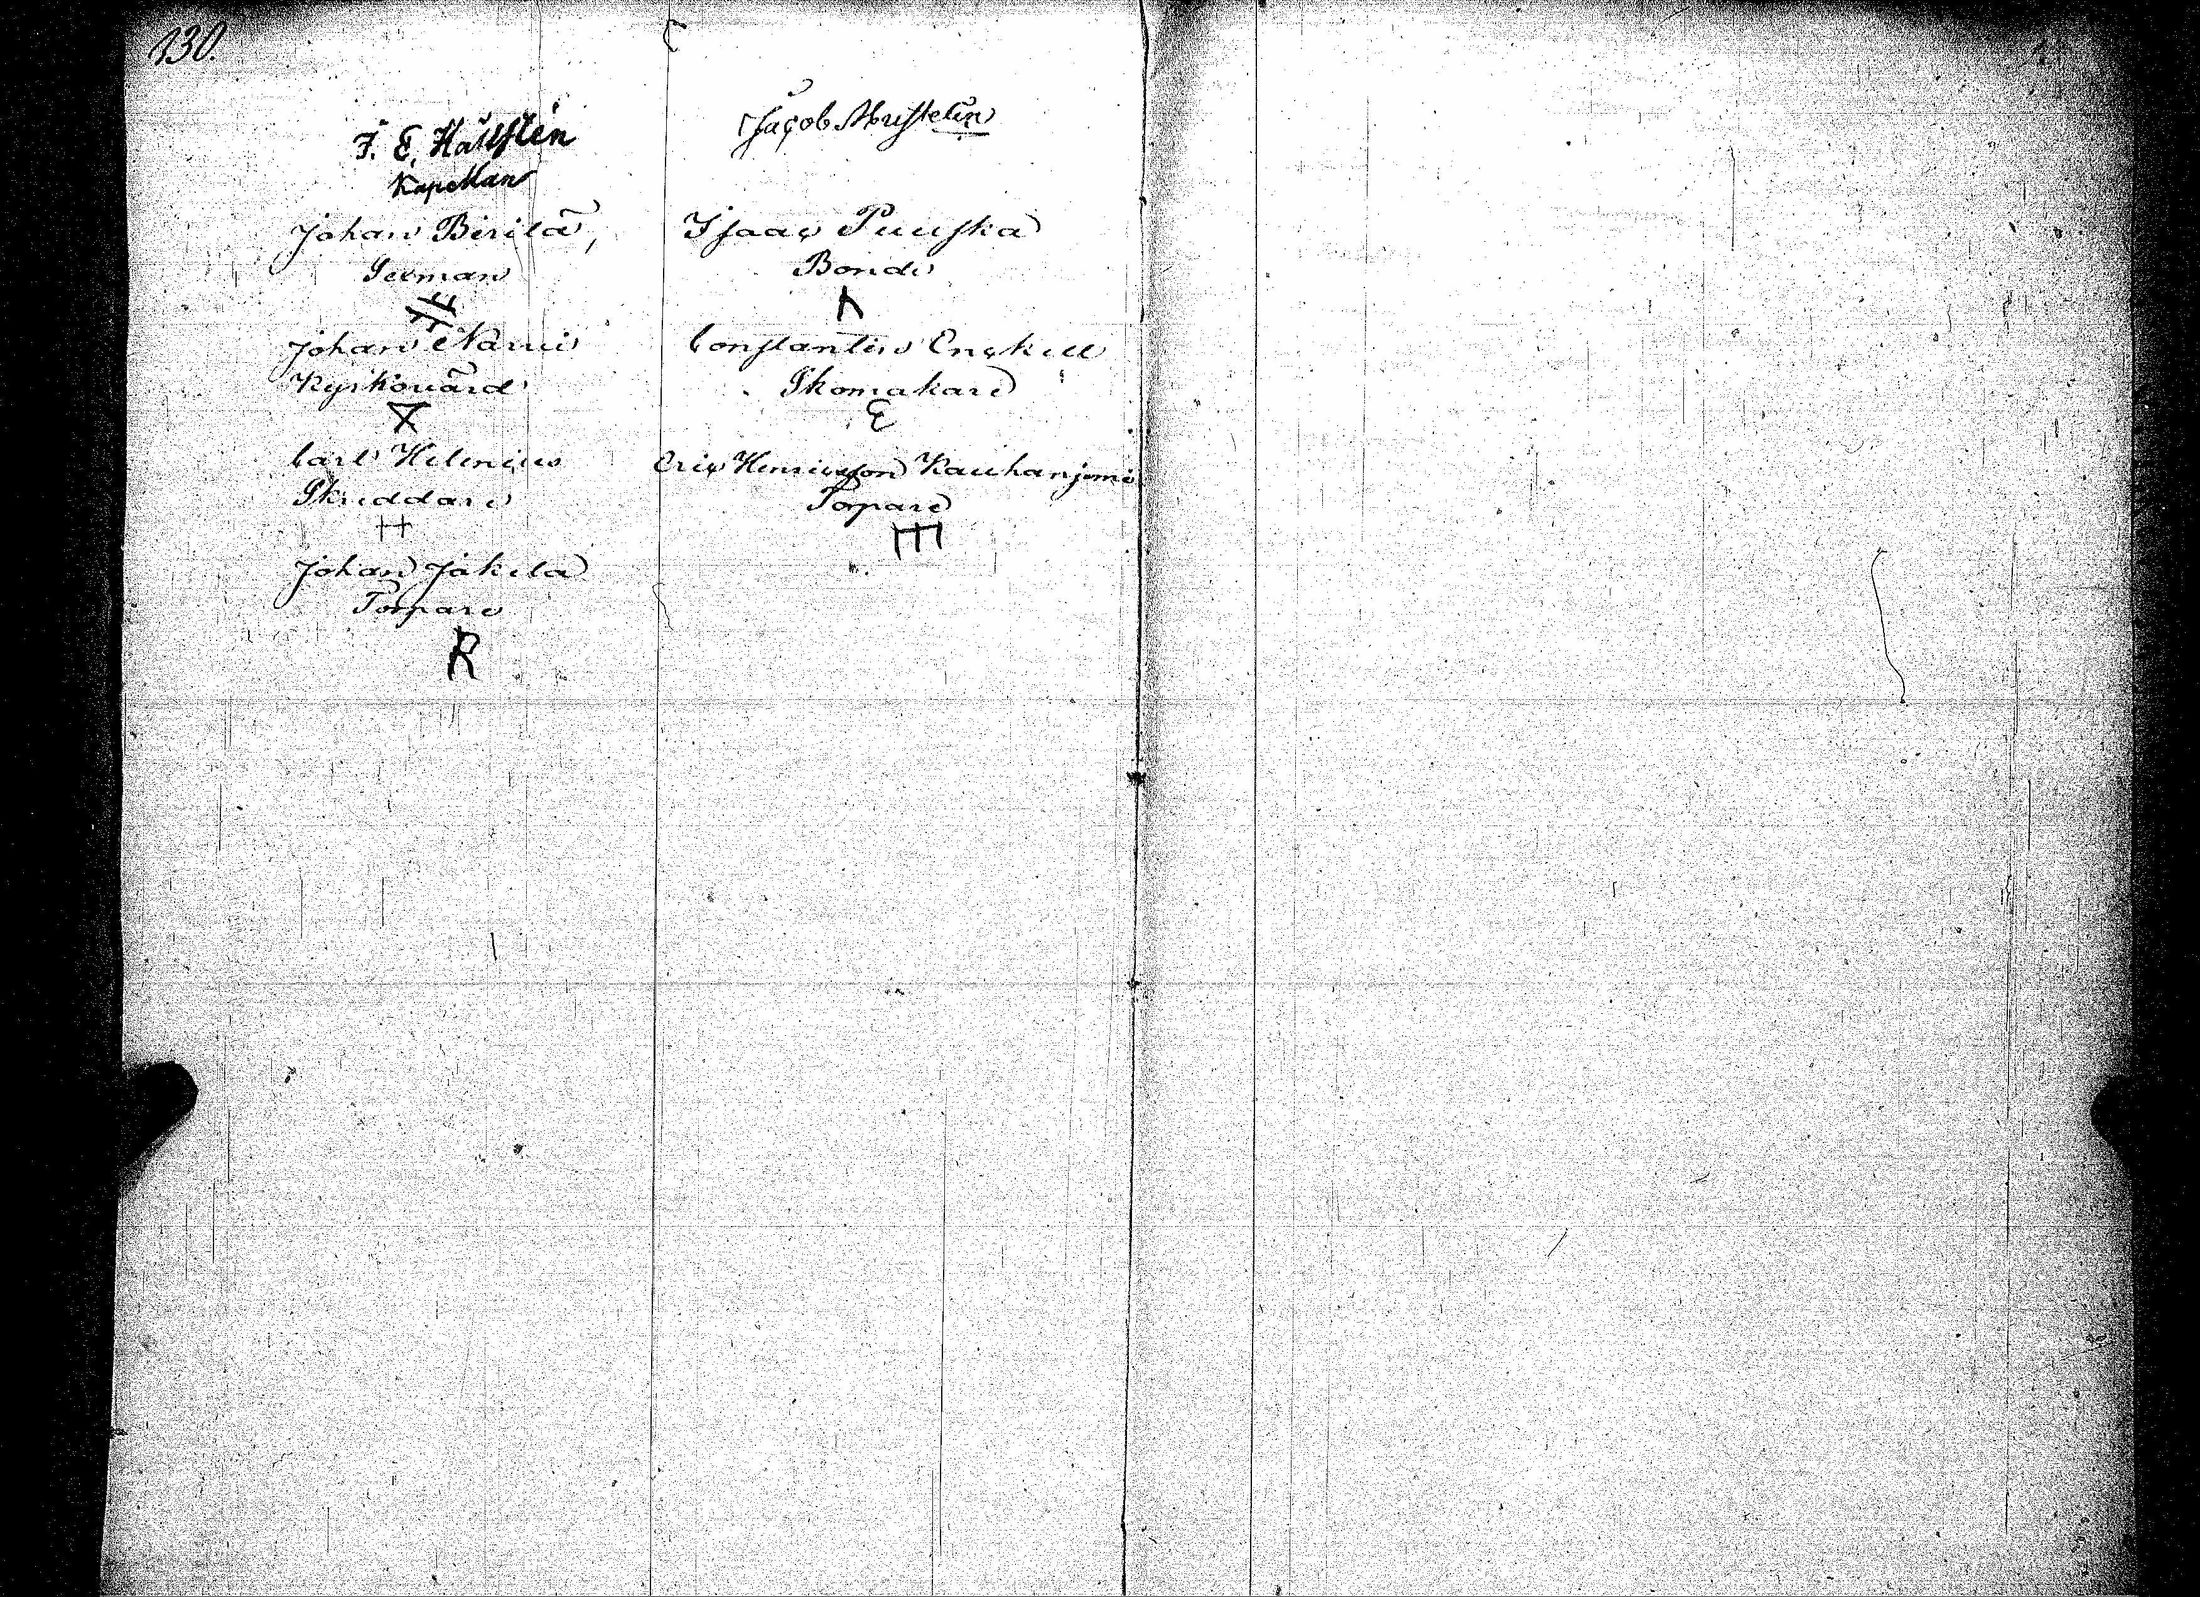 130.
F. E. Hällstén
Kapellan
Johan Berilä,
Sexman
Johan Narvi
Kyrkovärd
X
Carl Helenius
Skreddare
Johan Jäkelä
Torpare
R
Jacob Mustelin
Isaac Puuska
Bonde
Constantin Enqkell
Skomakare
E
Eric Henricsson Kauhaniemi
Torpare